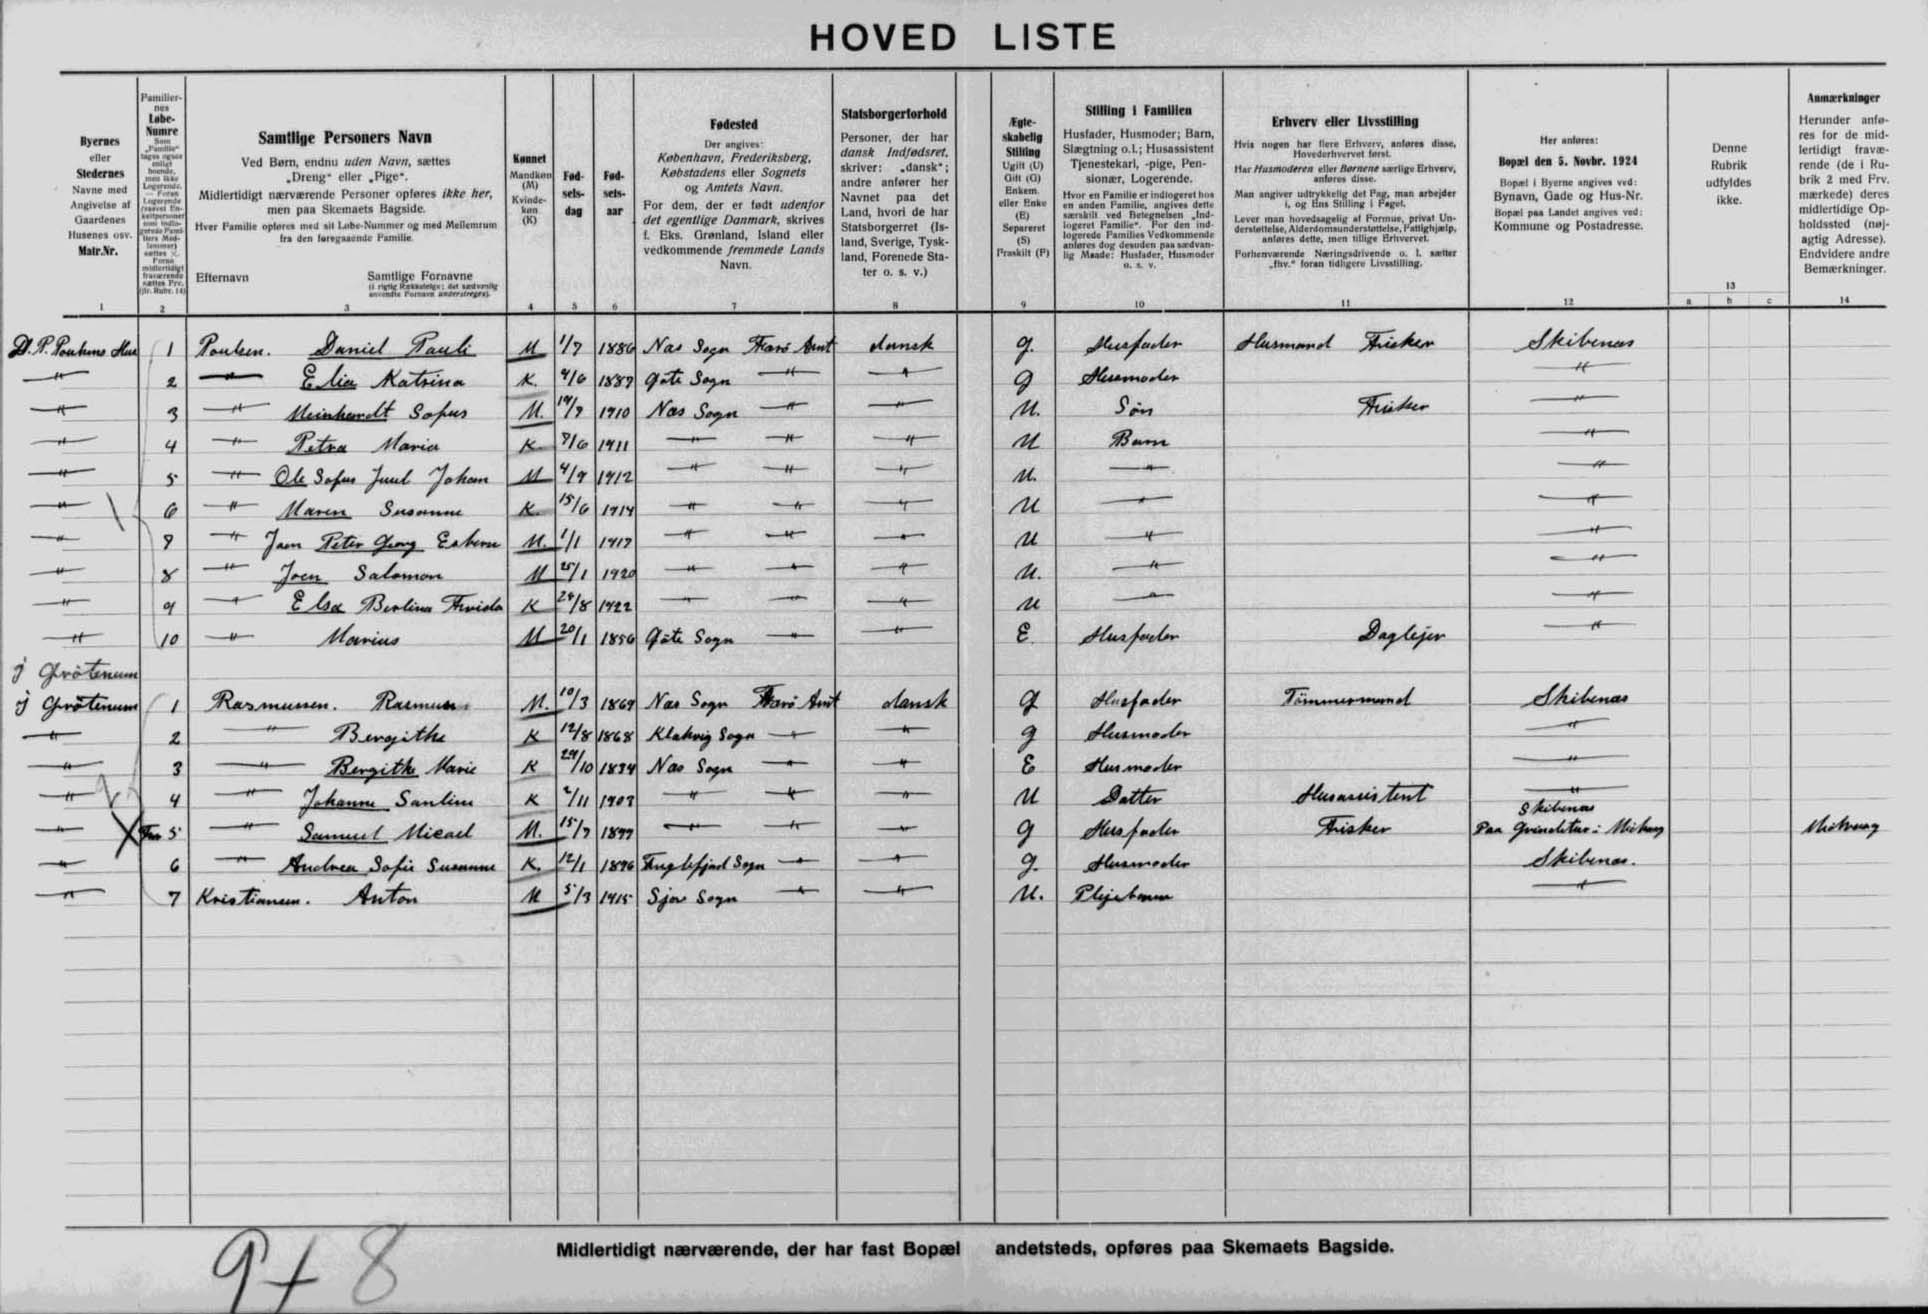 HOVED LISTE
Byernes
eller
Stedernes
Navne med
Angivelse af
Gaardenes
Husenes osv.
Matr.Nr.
1
Familier-
nes
Løbe-
Numre
2
Samtlige Personers Navn
Ved Børn, endnu uden Navn, sættes
„Dreng“ eller „Pige“.
Midlertidigt nærværende Personer opføres ikke her,
men paa Skemaets Bagside.
Hver Familie opføres med sit Løbe-Nummer og med Mellemrum
fra den foregaaende Familie.
Efternavn
Samtlige Fornavne
(i rigtig Rækkefølge; det sædvanlig
anvendte Fornavn understreges).
3
Kønnet
Mandkøn
(M)
Kvinde-
køn
(K)
4
Fød-
sels-
dag
5
Fød-
sels-
aar
6
Fødested
Der angives:
København, Frederiksberg,
Købstadens eller Sognets
og Amtets Navn.
For dem, der er født udenfor
det egentlige Danmark, skrives
f. Eks. Grønland, Island eller
vedkommende fremmede Lands
Navn.
7
Statsborgerforhold
Personer, der har
dansk Indfødsret,
skriver: „dansk“;
andre anfører her
Navnet paa det
Land, hvori de har
Statsborgerret (Is-
land, Sverige, Tysk-
land, Forenede Sta-
ter o. s. v.)
8
Ægte-
skabelig
Stilling
Ugift (U)
Gift (G)
Enkem.
eller Enke
(E)
Separeret
(S)
Fraskilt (F)
9
Stilling i Familien
Husfader, Husmoder; Barn,
Slægtning o.l.; Husassistent
Tjenestekarl, -pige, Pen-
sionær, Logerende.
Hvor en Familie er indlogeret hos
en anden Familie, angives dette
særskilt ved Betegnelsen „Ind-
logeret Familie“. For den ind-
logerede Families Vedkommende
anføres dog desuden paa sædvan-
lig Maade: Husfader, Husmoder
o. s. v.
10
Erhverv eller Livsstilling
Hvis nogen har flere Erhverv, anføres disse,
Hovederhvervet først.
Har Husmoderen eller Børnene særlige Erhverv,
anføres disse.
Man angiver udtrykkelig det Fag, man arbejder
i, og Ens Stilling i Faget.
Lever man hovedsagelig af Formue, privat Un-
derstøttelse, Alderdomsunderstøttelse, Fattighjælp,
anføres dette, men tillige Erhvervet.
Forhenværende Næringsdrivende o. l. sætter
„fhv.“ foran tidligere Livsstilling.
11
Her anføres:
Bopæl den 5. Novbr. 1924
Bopæl i Byerne angives ved:
Bynavn, Gade og Hus-Nr.
Bopæl paa Landet angives ved:
Kommune og Postadresse.
12
Denne
Rubrik
udfyldes
ikke.
13
a b c
Anmærkninger
Herunder anfø-
res for de mid-
lertidigt fravæ-
rende (de i Ru-
brik 2 med Frv.
mærkede) deres
midlertidige Op-
holdssted (nøj-
agtig Adresse).
Endvidere andre
Bemærkninger.
14
D. P. Poulsens Hus 1 Poulsen. Daniel Pauli M 1/7 1886 Næs Sogn Færø Amt dansk g. Husfader Husmand Fisker Skibenæs
" 2 " Elia Katrina K. 4/6 1887 Gøte Sogn " " g Husmoder "
" 3 " Meinhardt Sofus M. 14/7 1910 Næs Sogn " " U. Søn Fisker "
" 4 " Petra Maria K 7/6 1911 " " " U Barn "
" 5 " Ole Sofus Juul Johan M 4/9 1912 " " " U. " "
" 6 " Maren Susanne K. 15/6 1914 " " " U " "
" 7 " Joen Peter Georg Esbern M. 1/1 1917 " " " U " "
" 8 " Joen Salomon M 25/1 1920 " " " U. " "
" 9 " Elsa Berlina K 24/8 1922 " " " U " "
" 10 " Marius M 20/1 1856 Gøte Sogn " " E. Husfader Daglejer "
i Grötenum
i Grötenum 1 Rasmussen. Rasmus M. 10/3 1869 Næs Sogn Færø Amt dansk g Husfader Tømmermand Skibenæs
" 2 " Bergithe K 12/8 1868 Klaksvig Sogn " " g Husmoder "
" 3 " Bergithe Marie K 29/10 1834 Næs Sogn " " E Husmoder "
" 4 " Johanne Santine K 2/11 1903 " " " U Datter Husassistent "
" Frv 5 " Samuel Micael M. 15/7 1897 " " " g Husfader Fisker Skibenæs
" 6 " Andrea Sofie Susanne K. 12/1 1896 Fuglefjord Sogn " " g. Husmoder Skibenæs.
" 7 Kristiansen. Anton M 5/3 1915 Sjov Sogn " " U. Plejebarn "
9 + 8
Midlertidigt nærværende, der har fast Bopæl andetsteds, opføres paa Skemaets Bagside.